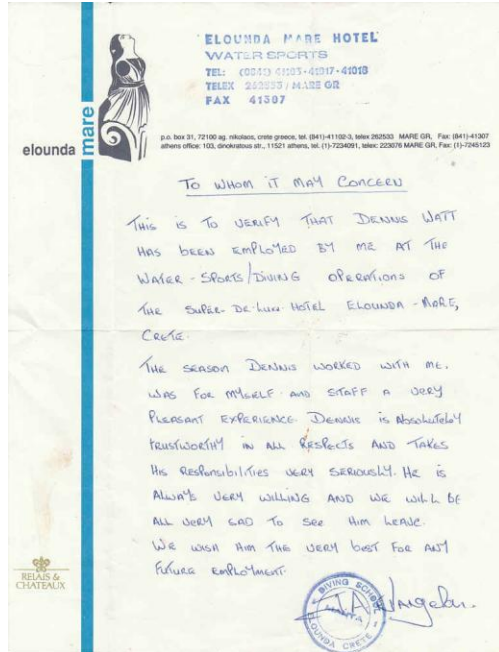 ELOUNDA MARE HOTEL
WATER SPORTS
TEL: (0841) 41103-41017-41018
TELEX 262533 / MARE GR
FAX 41307
elounda mare
p.o. box 31, 72100 ag. nikolaos, crete greece, tel. (841)-41102-3, telex 262533 MARE GR, Fax: (841)-41307
athens office: 103, dinokratous str., 11521 athens, tel. (1)-7234091, telex: 223076 MARE GR, Fax: (1)-7245123
TO WHOM IT MAY CONCERN
THIS IS TO VERIFY THAT DENNIS WATT
HAS BEEN EMPLOYED BY ME AT THE
WATER-SPORTS/DIVING OPERATIONS OF
THE SUPER-DE-LUX-HOTEL ELOUNDA-MARE,
CRETE.
THE SEASON DENNIS WORKED WITH ME,
WAS FOR MYSELF AND STAFF A VERY
PLEASANT EXPERIENCE. DENNIS IS ABSOLUTELY
TRUSTWORTHY IN ALL RESPECTS AND TAKES
HIS RESPONSIBILITIES VERY SERIOUSLY. HE IS
ALWAYS VERY WILLING AND WE WILL BE
ALL VERY SAD TO SEE HIM LEAVE.
WE WISH HIM THE VERY BEST FOR ANY
FUTURE EMPLOYMENT.
RELAIS &
CHATEAUX
DIVING SCHOOL
ELOUNDA CRETE